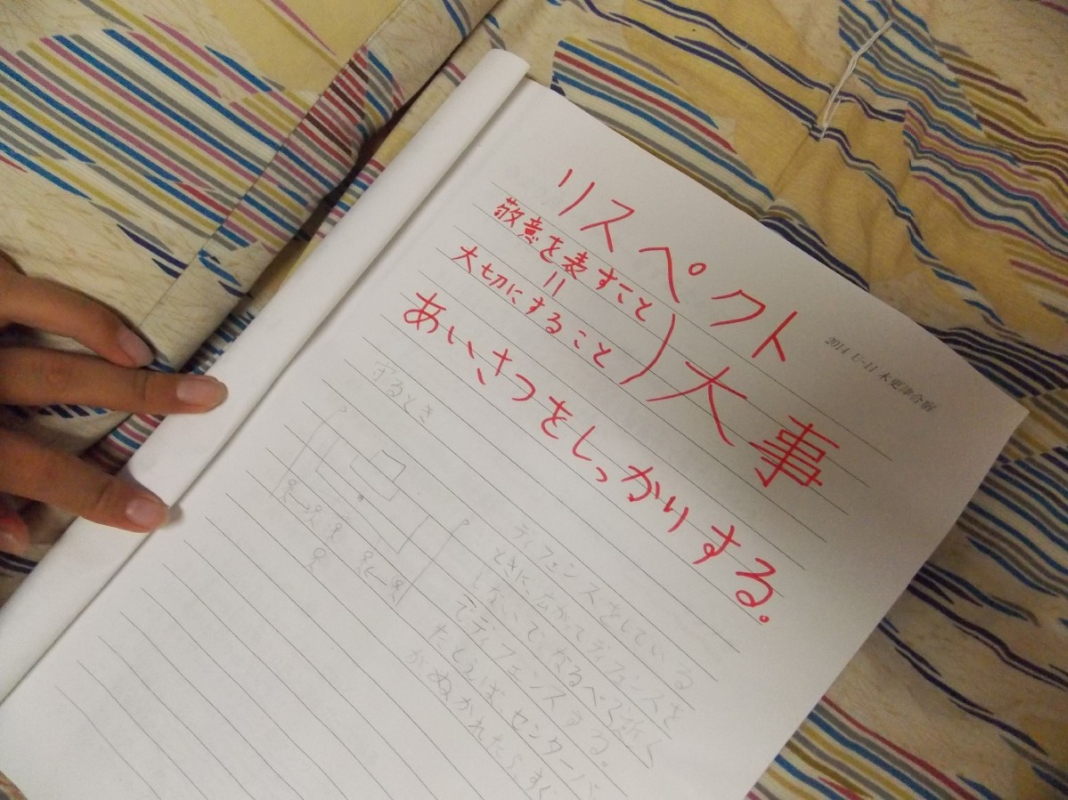 2014 U-11 木更津合宿
リスペクト
敬意を表すこと
||
大切にすること
)大事
あいさつをしっかりする。
するとき
ディフェンスをしている
ときに、広がってディフェンスを
しないで、なるべく近く
でディフェンスする。
たとえば、センターバ
がぬかれたら、すぐ